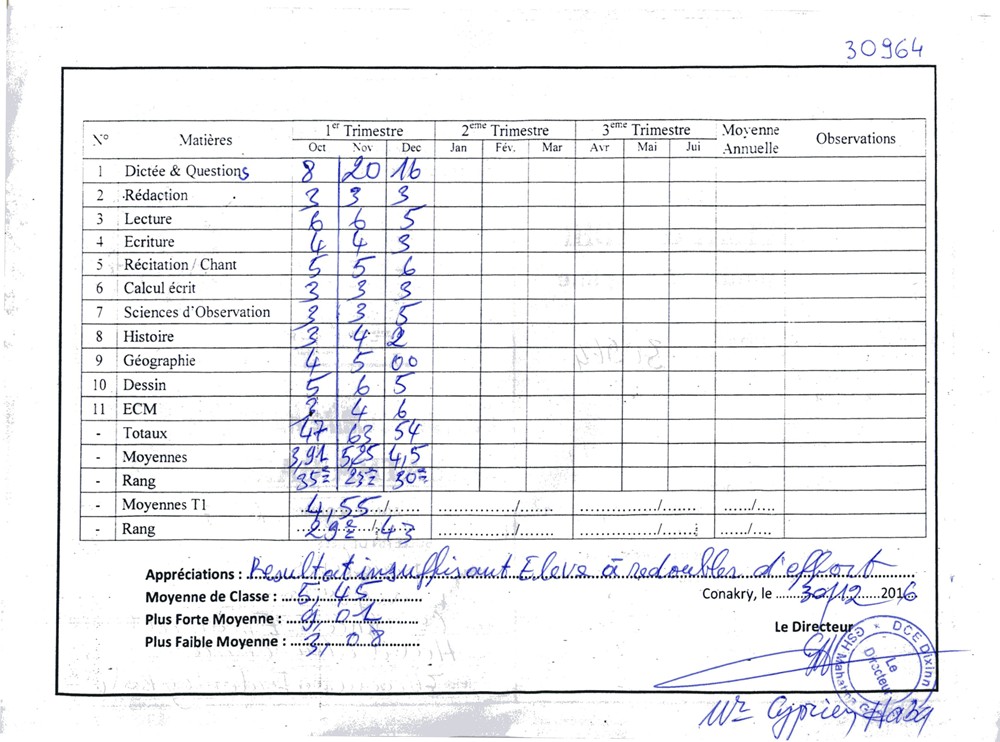 30964
N° Matières 1er Trimestre 2eme Trimestre 3eme Trimestre Moyenne Annuelle Observations
Oct Nov Dec Jan Fév. Mar Avr Mai Jui
1 Dictée & Questions 8 20 16
2 Rédaction 3 3 3
3 Lecture 6 6 5
4 Ecriture 4 4 3
5 Récitation / Chant 5 5 6
6 Calcul écrit 3 3 3
7 Sciences d'Observation 3 3 5
8 Histoire 3 4 2
9 Géographie 4 5 00
10 Dessin 5 6 5
11 ECM 3 4 6
- Totaux 47 63 54
- Moyennes 3,91 5,25 4,5
- Rang 35e 23e 30e
- Moyennes T1 4,55 ....../...... ....../...... ....../....
- Rang 29e / 43 ....../...... ....../...... ....../....
Appréciations : Resultat insuffisant Elève à redoubles d'effort
Moyenne de Classe : 5,45 Conakry, le 30/12 2016
Plus Forte Moyenne : 9,01
Plus Faible Moyenne : 3,08 Le Directeur
DCE Dixinn
GSH
Le Directeur
Mr Cyprien Haba